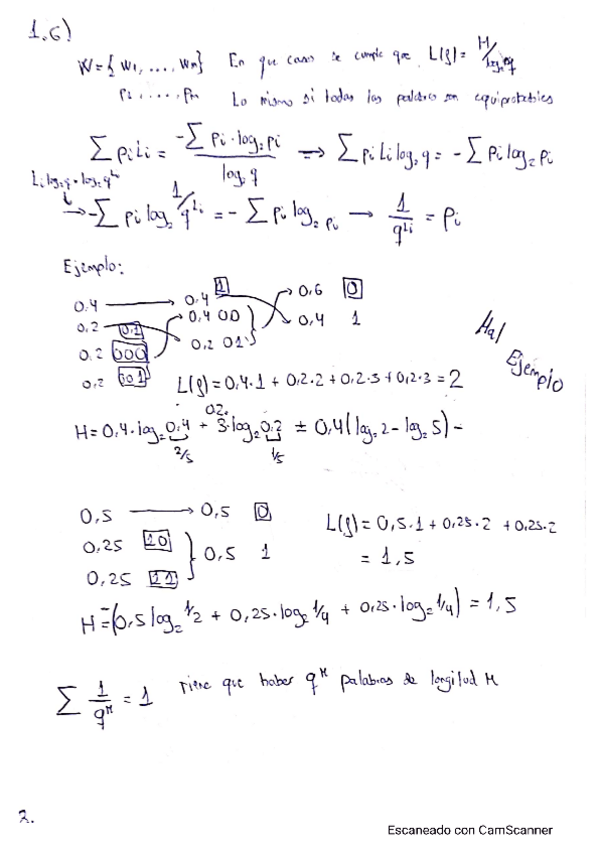 1.6)
W = { w₁, ..., wₙ } En que casos se cumple que L(f) = H/log₂ q
p₁, ..., pₙ Lo mismo si todas las palabras son equiprobables
∑ pᵢ Lᵢ = -∑ pᵢ · log₂ pᵢ / log₂ q ⟹ ∑ pᵢ Lᵢ log₂ q = -∑ pᵢ log₂ pᵢ
Lᵢ log₂ q = log₂ q^Lᵢ
→ -∑ pᵢ log₂ 1/q^Lᵢ = -∑ pᵢ log₂ pᵢ → 1/q^Lᵢ = pᵢ
Ejemplo:
0.4 → 0.4 1 0,6 0
0,2 01 0,4 00 0,4 1
0,2 000 0,2 01
0,2 001
Mal Ejemplo
L(f) = 0,4·1 + 0,2·2 + 0,2·3 + 0,2·3 = 2
H = 0,4·log₂ 0,4 + 0,2·3·log₂ 0,2 = 0,4(log₂ 2 - log₂ 5) -
2/5 1/5
0,5 → 0,5 0
0,25 10
0,5 1
0,25 11
L(f) = 0,5·1 + 0,25·2 + 0,25·2
= 1,5
H = -(0,5 log₂ 1/2 + 0,25·log₂ 1/4 + 0,25·log₂ 1/4) = 1,5
∑ 1/q^M = 1 Tiene que haber q^M palabras de longitud M
2.
Escaneado con CamScanner